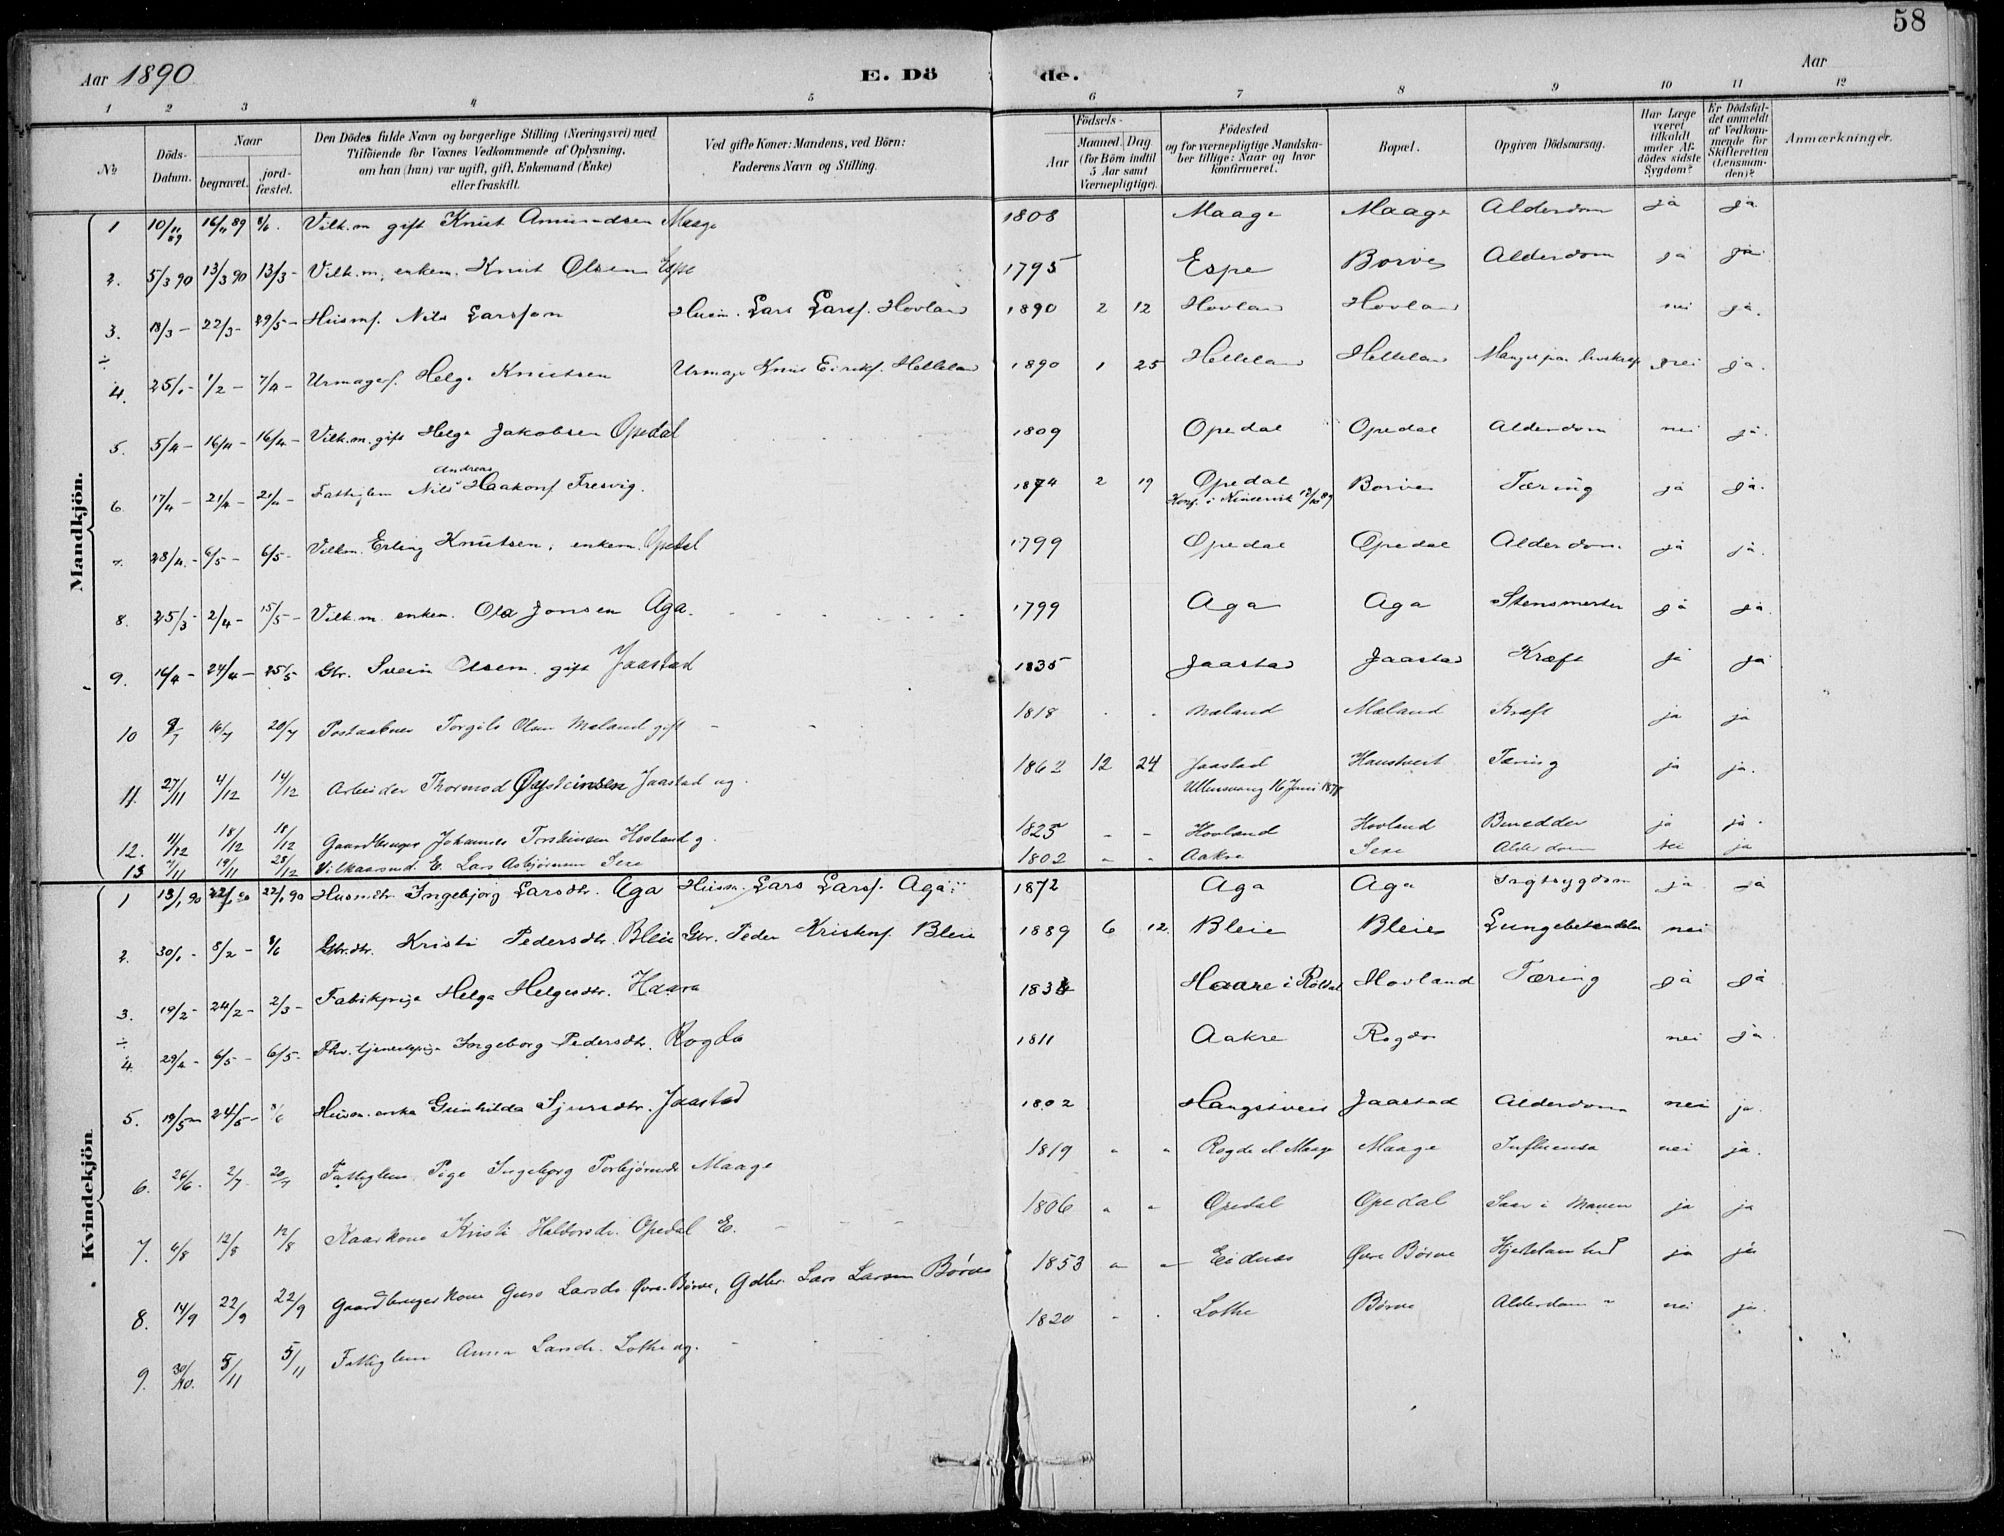 58
Aar 1890
E. Dö de.
Aar
1 2 3 4 5 6 7 8 9 10 11 12
№
Döds-Datum.
Naar
begravet.
jordfæstet.
Den Dödes fulde Navn og borgerlige Stilling (Næringsvei) med
Tilföiende for Voxnes Vedkommende af Oplysning,
om han (hun) var ugift, gift, Enkemand (Enke)
eller fraskilt.
Ved gifte Koner: Mandens, ved Börn:
Faderens Navn og Stilling.
Födsels-
Aar
Maaned Dag
(for Börn indtil
5 Aar samt
Værnepligtige).
Födested
og for værnepligtige Mandska-
ber tillige: Naar og hvor
konfirmeret.
Bopæl.
Opgiven Dödsaarsag.
Har Læge
været
tilkaldt
under Af-
dödes sidste
Sygdom?
Er Dödsfal-
det anmeldt
af Vedkom-
mende for
Skifteretten
(Lensman-
den)?
Anmærkninger.
Mandkjön.
1 10/11 89 16/11 89 8/6. Vilk.m gift Knut Amundsen Maage 1808 Maage Maage Alderdom ja ja
2. 5/3 90 13/3 90 13/3 - Vilk.m. enkem. Knut Olsen Espe 1795 Espe Borve Alderdom ja ja
3. 18/3 - 22/3 - 29/5 - Husmf. Nils Larssen Husm. Lars Larsf. Hovland 1890 2 12 Hovland Hovland nei ja.
÷
4. 25/1 - 1/2 - 7/4 - Urmagef. Helge Knutsen Urmag. Knut Eirikf. Helleland 1890 1 25 Helleland Helleland Mangel paa livskraft nei ja.
5. 5/4 - 16/4 - 16/4 - Vilk.m. gift Helge Jakobsen Opedal 1809 Opedal Opedal Alderdom nei ja.
6 17/4 - 21/4 - 21/4 - Fattiglem Nils Andreas Haakonf Fresvig. 1874 2 19 Opedal Borve Tæring ja ja.
Konf. i Kinservik 89
7. 28/4. - 6/5 - 6/5 - Vilkm. Erling Knutsen, enkem. Opedal 1799 Opedal Opedal Alderdom. ja ja.
8. 25/3 - 2/4 - 15/5 - Vilk.m. enkem. Ola Jonsen Aga. 1799 Aga Aga Stensmerter ja ja.
9. 16/4 - 24/4 - 25/5 Gbr. Svein Olsen. gift Jaastad 1835 Jaastad Jaastad Kræft ja ja
10 9/7 16/7 20/7 Postaabner Torgils Olsen Maland gift - - 1818 . . Maland Mæland Kræft ja ja
11. 27/11 4/12 14/12 Arbeider Thormod Øysteinsen Jaastad ug. 1862 12 24 Jaastad Tæring ja ja.
Ullensvang 16 Juni 1878
12. 11/12 18/12 18/12 Gaardbruger Johannes Torsteinsen Hovland g. 1825 - - Hovland Hovland ja ja.
13 /11 19/11 28/12 Vilkaarsmd. E. Lars Asbjørnsen Sexe 1802 " " Aakre Sexe Alderdom nei ja
Kvindekjön
1 13/1 90 22/1 90 22/1 90 Husmdtr. Ingebjørg Larsdtr. Aga Husm. Lars Larsf. Aga. 1872 Aga Aga ja ja
2. 30/1 - 8/2 - 8/6 Gbrdtr. Kristi Pedersdtr. Bleie Gbr. Peder Kristenf. Bleie 1889 6 12. Bleie Bleie Lungebetændelse nei
3. 19/2 - 24/2 - 2/3 - Fabrikpige Helga Helgesdtr. Haara Haare i Røldal Hovland Tæring ja ja
÷
4. 29/4 - 6/5 - 6/5 - Fhv. tjenestepige Ingeborg Pedersdtr. Rogde 1811 Aakre Rogde nei ja.
5. 19/5 24/5 - 8/6 Husm. enke Gunhilda Sjursdtr. Jaastad 1802 Jaastad Alderdom nei ja.
6. 26/6. 2/7. 20/7 Fattiglem. Pige Ingebjørg Torbjørnsdr Maage 1819 " " Rogde el Maage Maage Influensa nei ja.
7. 6/8 12/8 12/8 Kaarkone Kristi Haldorsdr. Opedal E. 1806 " " Opedal Opedal Saar i Maven ja ja
8. 14/9 22/9 22/9 Gaardbrugerkone Guro Larsdr Øvre-Børve, Gdbr. Lars Larsen Børve 1853 " " Eidnes Øvre Børve ja ja
9. 30/10. 5/11 5/11 Fattiglem Anna Larsdr. Lothe ug. - 1820 " . Lothe Børve Alderdom nei ja.